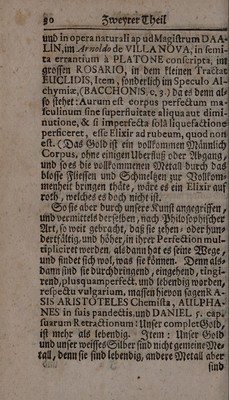 30 Zweyter Theil
und in opera naturali ap ud Magistrum DAA-
LIN, im Arnoldo de VILLA NOVA, in semi-
ta errantium à PLATONE conscripta, im
grossen ROSARIO, in dem kleinen Tractat
EUCLIDIS, Item, sonderlich im Speculo Al-
chymiæ, (BACCHONIS, c. 3.) da es denn al-
so stehet: Aurum est corpus perfectum ma-
sculinum sine superfluitate aliqua aut dimi-
nutione, & si imperfecta solâ liquefactione
perficeret, esse Elixir ad rubeum, quod non
est. (Das Gold ist ein vollkommen Männlich
Corpus, ohne einigen Uberfluß oder Abgang,
und so es die vollkommenen Metall durch das
blosse Fliessen und Schmeltzen zur Vollkom-
menheit bringen thäte, wäre es ein Elixir auf
roth, welches es doch nicht ist.
So sie aber durch unsere Kunst angegriffen,
und vermittels derselben, nach Philosophischer
Art, so weit gebracht, daß sie zehen- oder hun-
dertfältig, und höher, in ihrer Perfection mul-
tipliciret werden, alsdann hat es seine Wege,
und findet sich wol, was sie können. Denn als-
dann sind sie durchdringend, eingehend, tingi-
rend, plusquamperfect. und lebendig worden,
respectu vulgarium, massen hievon sagen RA-
SIS ARISTOTELES Chemista, AULPHA-
NES in suis pandectis, und DANIEL 5. cap.
suarum Retractionum: Unser complet Gold,
ist mehr als lebendig. Item: Unser Gold
und unser weisses Silber sind nicht gemeine Me-
tall, denn sie sind lebendig, andere Metall aber
sind